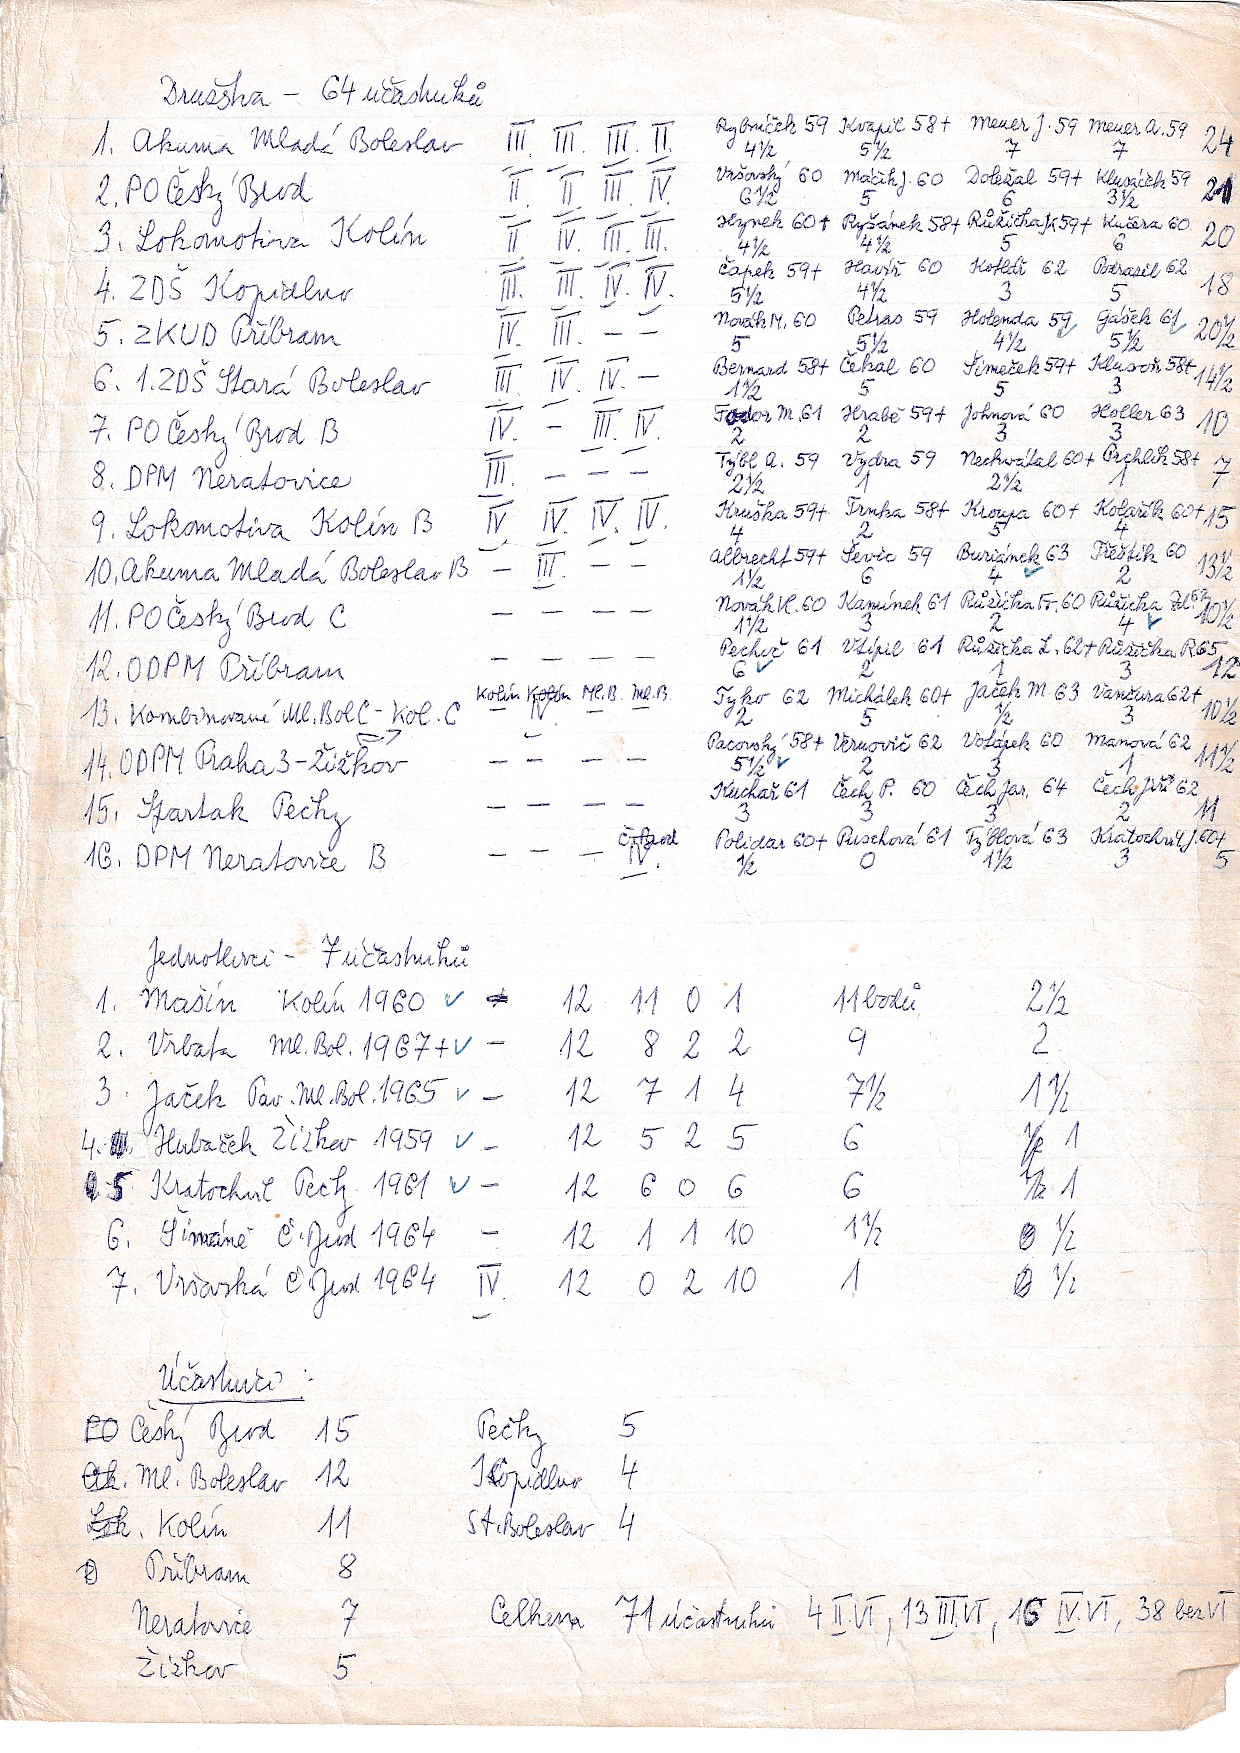 Družstva – 64 účastníků
1. Akuma Mladá Boleslav III. III. III. II. Rybníček 59 Kvapil 58+ Meuer J. 59 Meuer A. 59 24
4½ 5½ 7 7
2. PO Český Brod II II III IV. Vršovský 60 Macík J. 60 Doležal 59+ Klusáček 59 21
6½ 5 6 3½
3. Lokomotiva Kolín II IV. III. III. Hynek 60+ Ryšánek 58+ Růžička Jk 59+ Kučera 60 20
4½ 4½ 5 6
4. ZDŠ Kopidlno III. III. IV. IV. Čapek 59+ Havíř 60 62 62 18
5½ 4½ 3 5
5. ZKUD Příbram IV. III. – – Novák M. 60 Petras 59 Holenda 59 Gašek 61 20½
5 5½ 4½ 5½
6. 1. ZDŠ Stará Boleslav III IV. IV. – Bernard 58+ Čekal 60 Šimeček 59+ Klusoň 58+ 14½
1½ 5 5 3
7. PO Český Brod B IV. – III. IV. Fodor M. 61 Hrabě 59+ Johnová 60 Holler 63 10
2 2 3 3
8. DPM Neratovice III. – – – Týbl A. 59 Vydra 59 Nechvátal 60+ Pechlík 58+ 7
2½ 1 2½ 1
9. Lokomotiva Kolín B IV. IV. IV. IV. Kruška 59+ Trnka 58+ Kroupa 60+ Kolařík 60+ 15
4 2 5 4
10. Akuma Mladá Boleslav B – III. – – Albrecht 59+ Ševic 59 Buriánek 63 Třeštík 60 13½
1½ 6 4 2
11. PO Český Brod C – – – – Novák Vl. 60 Kamínek 61 Růžička Fr. 60 Růžička Zd. 62 10½
1½ 3 2 4
12. ODPM Příbram – – – – Pechoč 61 Všípil 61 Růžička L. 62+ Růžička R 65 12
6 2 1 3
13. Kombinované Ml. Bol C – Kol. C Kolín Kolín IV. Ml. B. Ml. B. Tyko 62 Michálek 60+ Jaček M 63 Vančura 62+ 10½
2 5 ½ 3
14. ODPM Praha 3 – Žižkov – – – – Pacovský 58+ Vernovič 62 Votápek 60 Manová 62 11½
5½ 2 3 1
15. Spartak Pečky – – – – Kuchař 61 Čech P. 60 Čech Jar. 64 Čech Jiří 62 11
3 3 3 2
16. DPM Neratovice B – – – Č. Brod IV. Polidar 60+ Puschová 61 Týblová 63 Kratochvíl J. 60+ 5
½ 0 1½ 3
Jednotlivci – 7 účastníků
1. Mašín Kolín 1960 – 12 11 0 1 11 bodů 2½
2. Vrbata Ml. Bol. 1967+ – 12 8 2 2 9 2
3. Jaček Pav. Ml. Bol. 1965 – 12 7 1 4 7½ 1½
4. Hubáček Žižkov 1959 – 12 5 2 5 6 ½ 1
5 Kratochvíl Pečky 1961 – 12 6 0 6 6 ½ 1
6. Šimáně Č. Brod 1964 – 12 1 1 10 1½ 0 ½
7. Vršovská Č Brod 1964 IV. 12 0 2 10 1 0 ½
Účastníci :
PO Český Brod 15 Pečky 5
Ak. Ml. Boleslav 12 Kopidlno 4
Lok. Kolín 11 St. Boleslav 4
Příbram 8
Neratovice 7 Celkem 71 účastníků 4 II. VT, 13 III. VT, 16 IV. VT, 38 bez VT
Žižkov 5